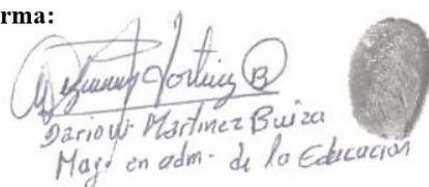 rma:
Dario W. Martinez Buiza
Mag. en adm. de la Educacion